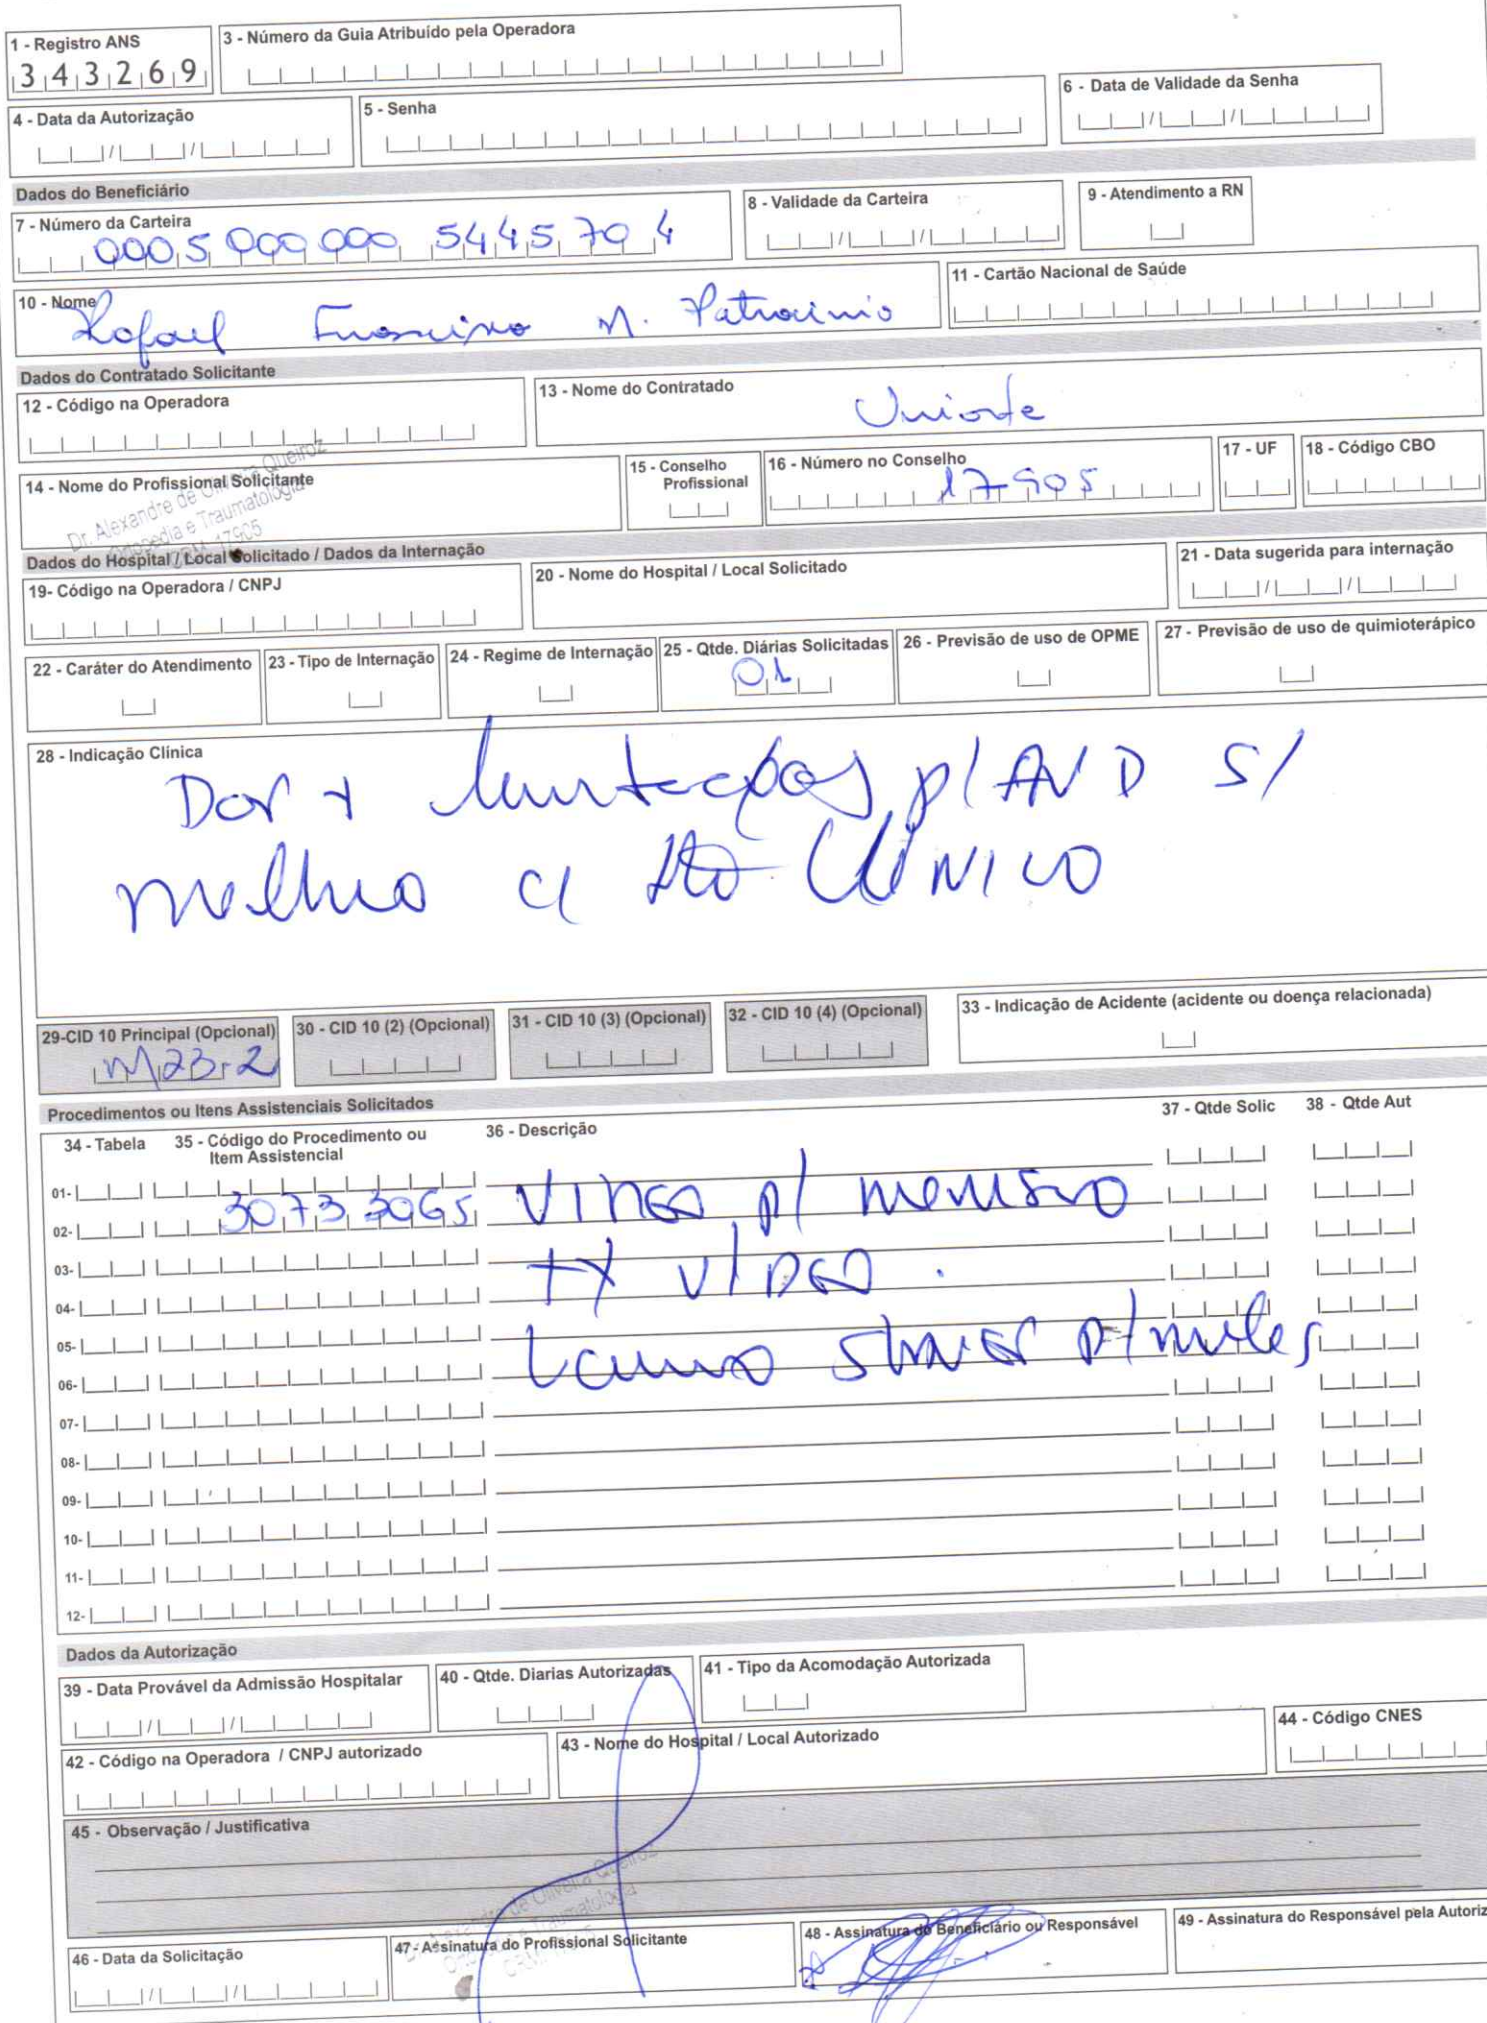 1 - Registro ANS
343269
3 - Número da Guia Atribuído pela Operadora
4 - Data da Autorização
5 - Senha
6 - Data de Validade da Senha
Dados do Beneficiário
7 - Número da Carteira
0005 000 000 5445 70 4
8 - Validade da Carteira
9 - Atendimento a RN
10 - Nome
Rafael Francisco M. Patrocinio
11 - Cartão Nacional de Saúde
Dados do Contratado Solicitante
12 - Código na Operadora
13 - Nome do Contratado
14 - Nome do Profissional Solicitante
Dr. Alexandre de Oliveira Queiroz
Ortopedia e Traumatologia
CRM 17905
15 - Conselho Profissional
16 - Número no Conselho
17905
17 - UF
18 - Código CBO
Dados do Hospital / Local Solicitado / Dados da Internação
19- Código na Operadora / CNPJ
20 - Nome do Hospital / Local Solicitado
21 - Data sugerida para internação
22 - Caráter do Atendimento
23 - Tipo de Internação
24 - Regime de Internação
25 - Qtde. Diárias Solicitadas
01
26 - Previsão de uso de OPME
27 - Previsão de uso de quimioterápico
28 - Indicação Clínica
Dor + limitações p/ AVD s/
melhora c/ tto clínico
29-CID 10 Principal (Opcional)
M23.2
30 - CID 10 (2) (Opcional)
31 - CID 10 (3) (Opcional)
32 - CID 10 (4) (Opcional)
33 - Indicação de Acidente (acidente ou doença relacionada)
Procedimentos ou Itens Assistenciais Solicitados
34 - Tabela
35 - Código do Procedimento ou
Item Assistencial
36 - Descrição
37 - Qtde Solic
38 - Qtde Aut
01-
02- 30733065 VIDEO p/ menisco
03- TX VIDEO.
04-
05- Lamina shaver p/
06-
07-
08-
09-
10-
11-
12-
Dados da Autorização
39 - Data Provável da Admissão Hospitalar
40 - Qtde. Diarias Autorizadas
41 - Tipo da Acomodação Autorizada
42 - Código na Operadora / CNPJ autorizado
43 - Nome do Hospital / Local Autorizado
44 - Código CNES
45 - Observação / Justificativa
Dr. Alexandre de Oliveira Queiroz
Ortopedia e Traumatologia
46 - Data da Solicitação
47 - Assinatura do Profissional Solicitante
48 - Assinatura do Beneficiário ou Responsável
49 - Assinatura do Responsável pela Autoriz